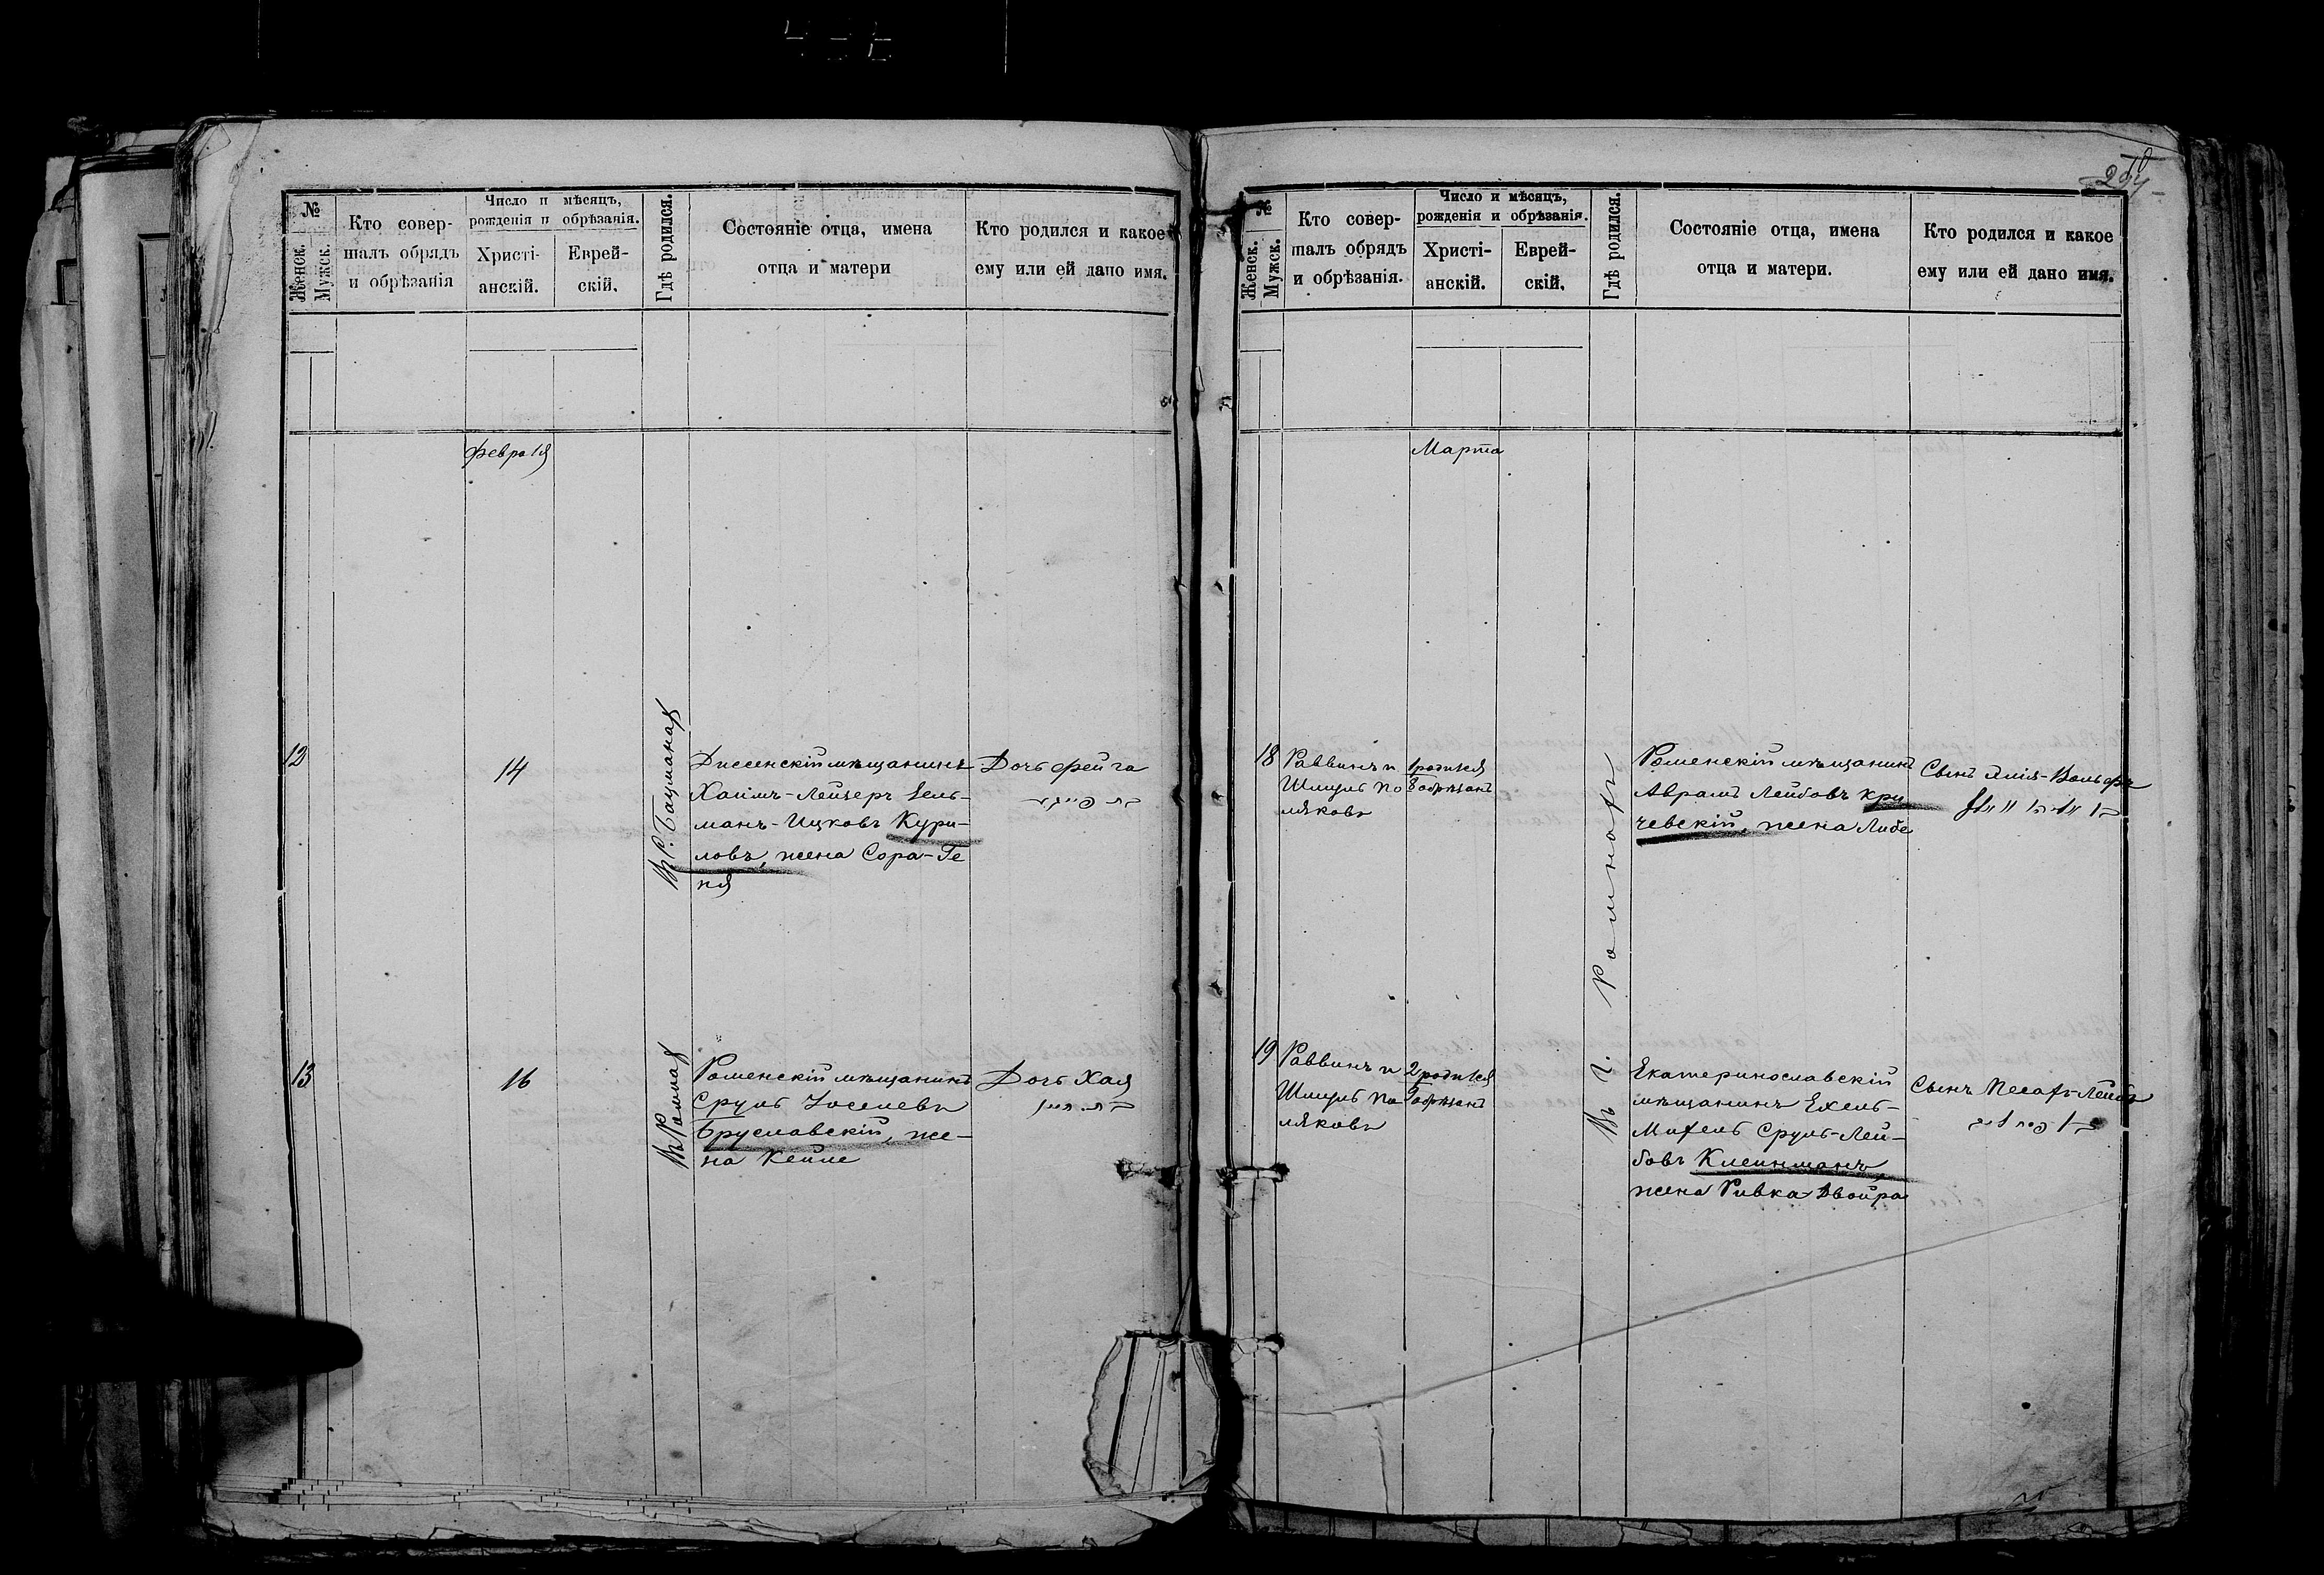 254
№
Женск.
Мужск.
Кто совер-
шалъ обрядъ
и обрѣзанія
Число и мѣсяцъ,
рожденія и обрѣзанія.
Христі-
анскій.
Еврей-
скій.
Гдѣ родился.
Состояніе отца, имена
отца и матери
Кто родился и какое
ему или ей дано имя.
Февраля
12
14
Въ С. Бацманах
Дисенскій мѣщанинъ
Хаимъ-Лейзеръ Зель-
манъ-Ицковъ Кури-
ловъ, жена Сора-Ге
ня
Дочь Фейга
13
16
Въ Ромнах
Роменскій мѣщанинъ
Сруль Іоселевъ
Бруславскій, же-
на Кейле
Дочь Хая
№
Женск.
Мужск.
Кто совер-
шалъ обрядъ
и обрѣзанія.
Число и мѣсяцъ,
рожденія и обрѣзанія.
Христі-
анскій.
Еврей-
скій.
Гдѣ родился.
Состояніе отца, имена
отца и матери.
Кто родился и какое
ему или ей дано имя.
Марта
18
Раввинъ и
Шмуль По
ляковъ
1 родился
8 обрѣзанъ
Въ г. Ромнахъ
Роменскій мѣщанинъ
Аврамъ Лейбовъ Кри
чевскій, жена Либе
Сынъ Илія-Вольфъ
19
Раввинъ и
Шмуль По
ляковъ
2 родился
9 обрѣзанъ
Екатеринославскій
мѣщанинъ Ехель-
Михель Сруль-Лей-
бовъ Клейнманъ
жена Ривка Двойра
Сынъ Песахъ-Лейбъ